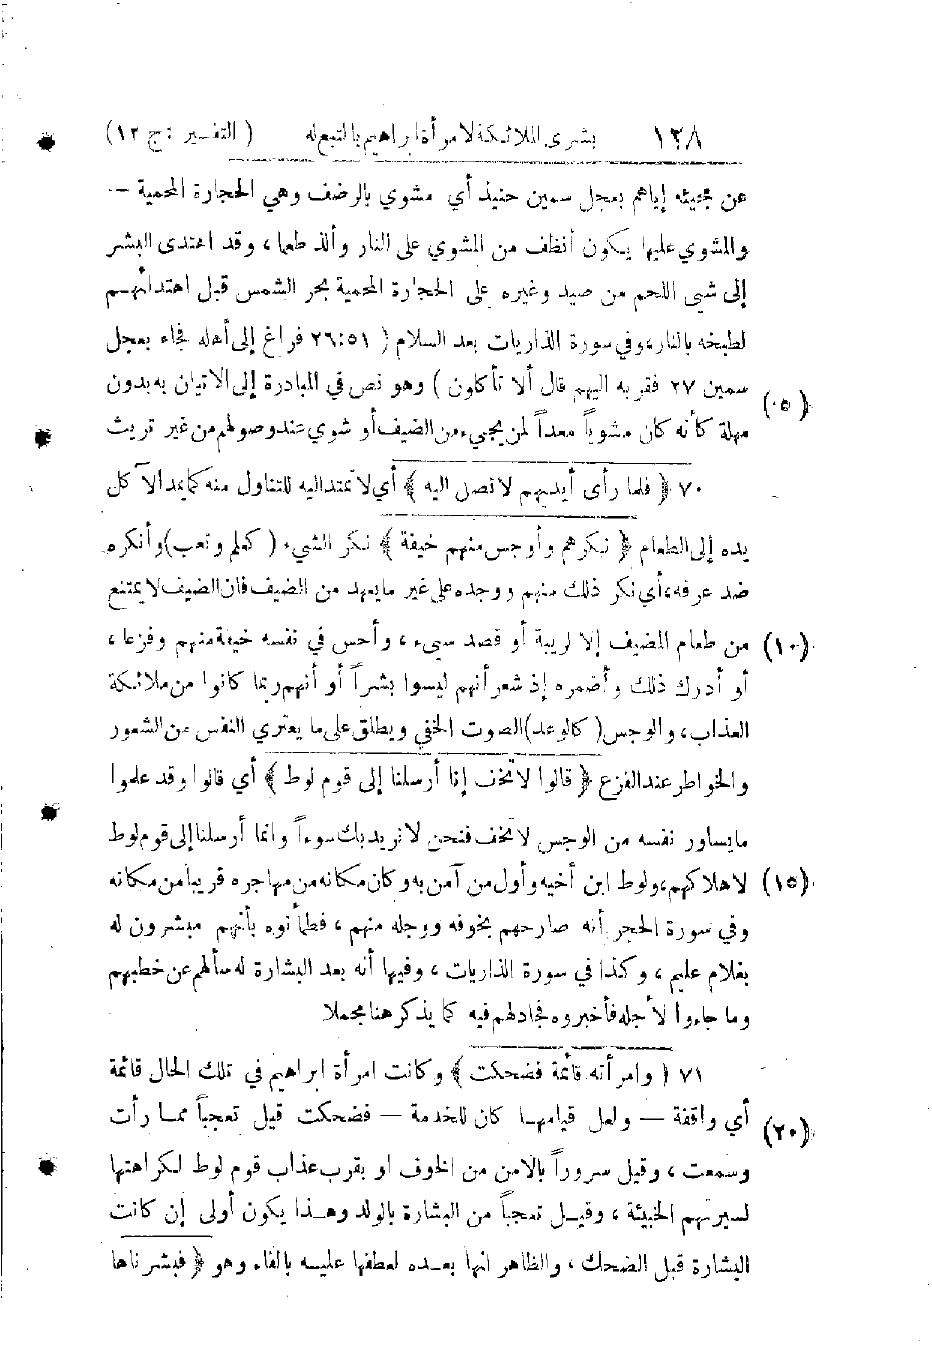 ١٢٨ بشرى الملائكة لامرأة ابراهيم بالتبع له ( التفسير : ج ١٢ )
عن مجيئه إياهم بعجل سمين حنيذ أي مشوي بالرضف وهي الحجارة المحمية —
والمشوي عليها يكون أنظف من المشوي على النار وألذ طعما ، وقد اهتدى البشر
إلى شيي اللحم من صيد وغيره على الحجارة المحمية بحر الشمس قبل اهتدائهم
لطبخه بالنار ، وفي سورة الذاريات بعد السلام ( ٢٦:٥١ فراغ إلى أهله فجاء بعجل
سمين ٢٧ فقربه اليهم قال ألا تأكلون ) وهو نص في المبادرة إلى الاتيان به بدون (٠٥)
مهلة كأنه كان مشوياً معداً لمن يجيء من الضيف أو شوي عند وصولهم من غير تريث
٧٠ ﴿ فلما رأى أيديهم لا تصل اليه ﴾ أي لا تمتد اليه للتناول منه كما يمد الآكل
يده إلى الطعام ﴿ نكرهم وأوجس منهم خيفة ﴾ نكر الشيء ( كعلم وتعب ) وأنكره
ضد عرفه ، أي نكر ذلك منهم ووجده على غير ما يعهد من الضيف فان الضيف لا يمتنع
من طعام المضيف إلا لريبة أو قصد سيء ، وأحس في نفسه خيفة منهم وفزعا ، (١٠)
أو أدرك ذلك وأضمره إذ شعر أنهم ليسوا بشراً أو أنهم ربما كانوا من ملائكة
العذاب ، والوجس ( كالوعد ) الصوت الخفي ويطلق على ما يعتري النفس من الشعور
والخواطر عند الفزع ﴿ قالوا لا تخف إنا أرسلنا إلى قوم لوط ﴾ أي قالوا وقد علموا
ما يساور نفسه من الوجس لا تخف فنحن لا نريد بك سوءاً وانما أرسلنا إلى قوم لوط
لاهلاكهم ، ولوط ابن أخيه وأول من آمن به وكان مكانه من مهاجره قريبا من مكانه (١٥)
وفي سورة الحجر أنه صارحهم بخوفه ووجله منهم ، فطمأنوه بأنهم مبشرون له
بغلام عليم ، وكذا في سورة الذاريات ، وفيها أنه بعد البشارة له سألهم عن خطبهم
وما جاءوا لأجله فأخبروه فجادلهم فيه كما يذكر هنا مجملا
٧١ ﴿ وامرأته قائمة فضحكت ﴾ وكانت امرأة ابراهيم في تلك الحال قائمة
أي واقفة — ولعل قيامها كان للخدمة — فضحكت قيل تعجباً مما رأت (٢٠)
وسمعت ، وقيل سروراً بالامن من الخوف او بقرب عذاب قوم لوط لكراهتها
لسيرتهم الخبيثة ، وقيل تعجباً من البشارة بالولد وهذا يكون أولى إن كانت
البشارة قبل الضحك ، والظاهر انها بعده لعطفها عليه بالفاء وهو ﴿ فبشرناها